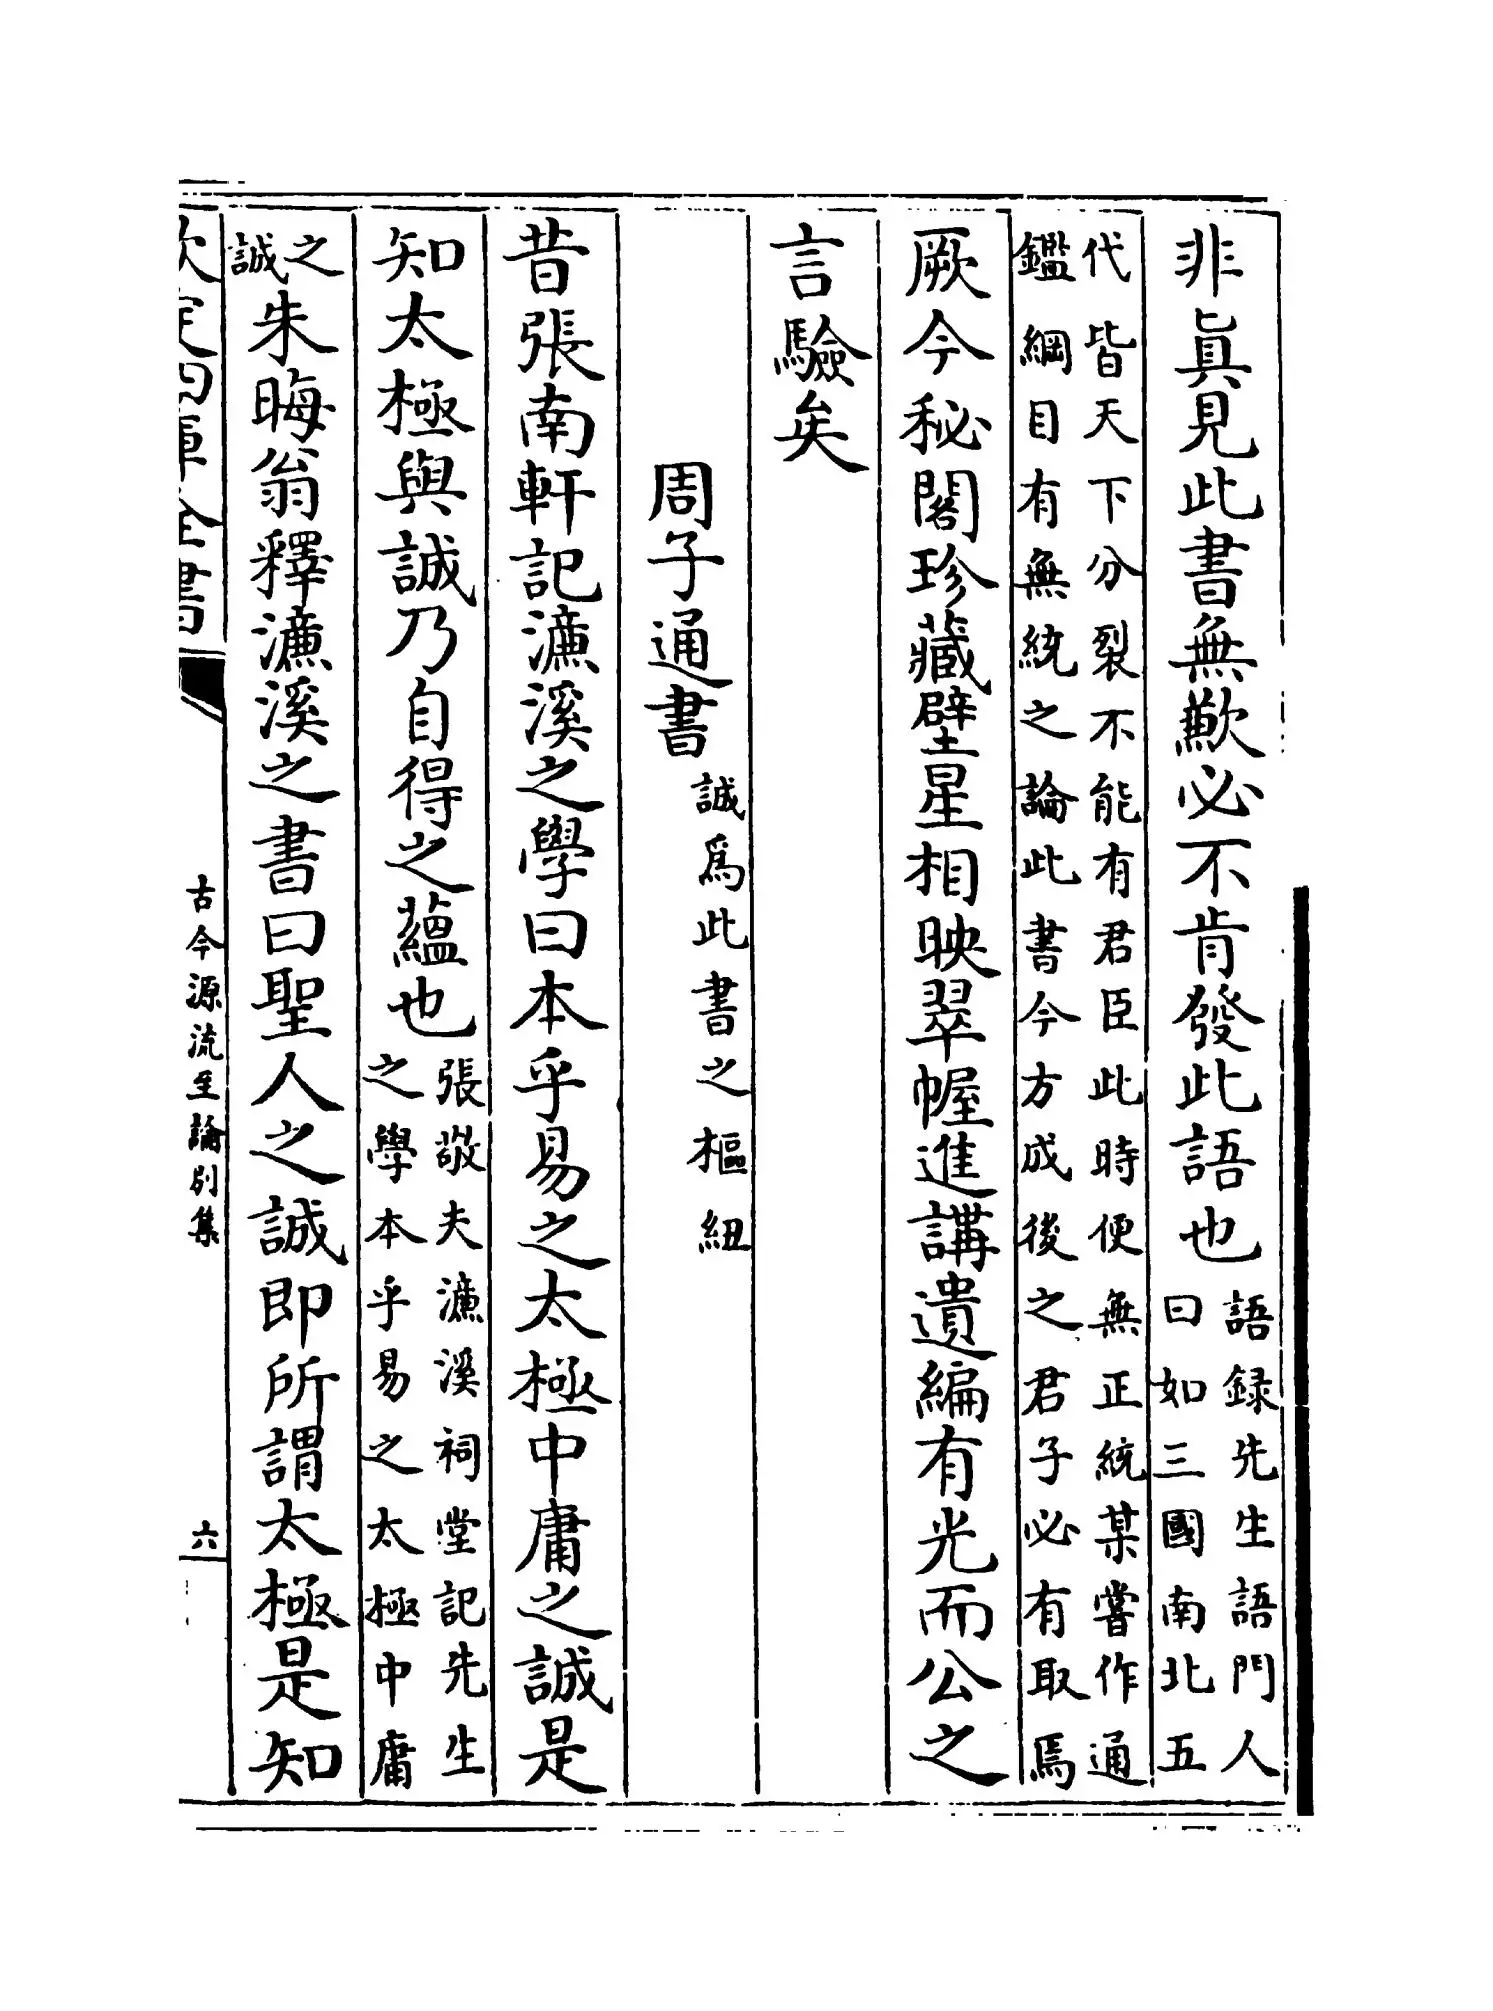 非眞見此書無歉必不肯發此語也語録先生語門人
曰如三國南北五
代皆天下分裂不能有君臣此時便無正統某嘗作通
鑑綱目有無統之論此書今方成後之君子必有取焉
厥今秘閣珍藏壁星相映翠幄進講遺編有光而公之
言驗矣
周子通書誠爲此書之樞紐
昔張南軒記濂溪之學曰本乎易之太極中庸之誠是
知太極與誠乃自得之蘊也張敬夫濂溪祠堂記先生
之學本乎易之太極中庸
之
誠朱晦翁釋濂溪之書曰聖人之誠即所謂太極是知
欽定四庫全書
古今源流至論别集
六